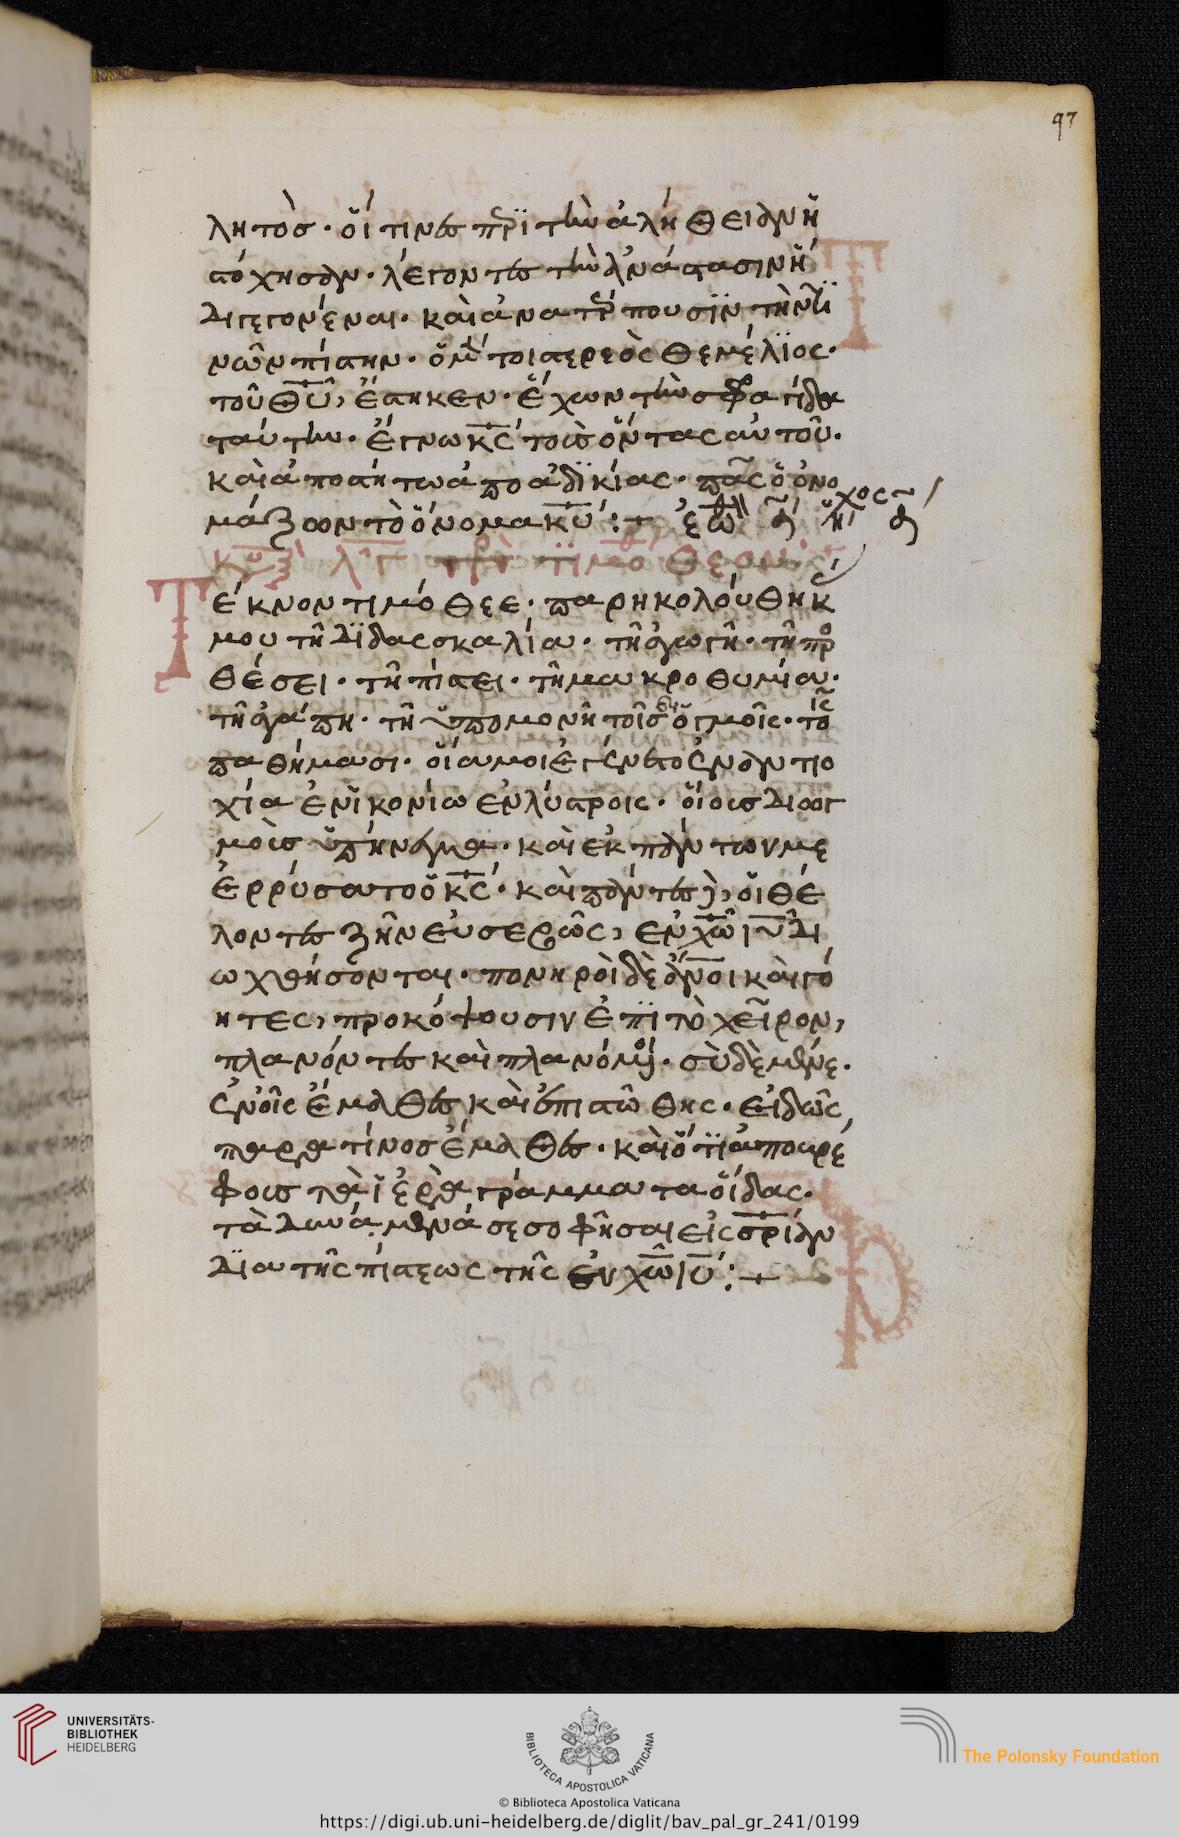 97
λητὸσ· οἵ τινες περῒ τὴν ἀλήθειαν ἢ
στόχησαν· λέγοντες τὴν ἀνάστασιν ἤ
δι γεγονέναι· καὶ ἀνατρέπουσϊν τὴν τϊ
νῶν πίστην· ὁ μέν τοι στερεὸς θεμέλϊος·
τοῦ θυ, ἕστηκεν· ἔχων τὴν σφραγίδα
ταύτην· ἔγνω κς τοὺς ὄντας αὐτοῦ·
καὶ ἀποστήτω ἀπὸ ἀδϊκίας· πᾶς ὁ ὀνο
μάζοων τὸ ὄνομα κυ :+
Τέκνον τιμόθεε· παρηκολούθηκ
μου τῆ διδασκαλία· τῆ ἀγωγῆ· τῆ προ
θέσει· τῆ πίστει· τῆ μακροθυμία·
τῆ ἀγάπη· τῆ ὑπομονῆ τοῖς διογμοῖς· τοῖς
παθήμασι· οἷα μοι ἐγένετο ἐν ἀντιο
χία ἐν ἰκονίω ἐν λύστροις· οἵους διωγ
μοὺς ὑπήνεγκα· καὶ ἐκ πάντων με
ἐρρύσατο ὁ κς· καὶ πάντες δὲ, οἱ θέ
λοντες ζῆν εὐσεβῶς, ἐν χω ιυ δι
ωχθήσονται· πονηροὶ δὲ ἄνοι καὶ γό
ητες, προκόψουσιν ἐπῒ τὸ χεῖρον,
πλανόντες καὶ πλανόμενοι· σὺ δὲ μένε·
ἐν οἷς ἔμαθες καὶ ἐπιστώθης· εἰδὼς
παρα τίνος ἔμαθες· καὶ ὅτϊ ἀπο βρέ
φους τὰ ἱερὰ γράμματα οἶδας·
τὰ δυνάμενά σε σοφῆσαι εἰς σριαν
δϊα τῆς πίστεως τῆς ἐν χω ιυ :+
UNIVERSITÄTS-
BIBLIOTHEK
HEIDELBERG
BIBLIOTECA APOSTOLICA VATICANA
The Polonsky Foundation
© Biblioteca Apostolica Vaticana
https://digi.ub.uni-heidelberg.de/diglit/bav_pal_gr_241/0199